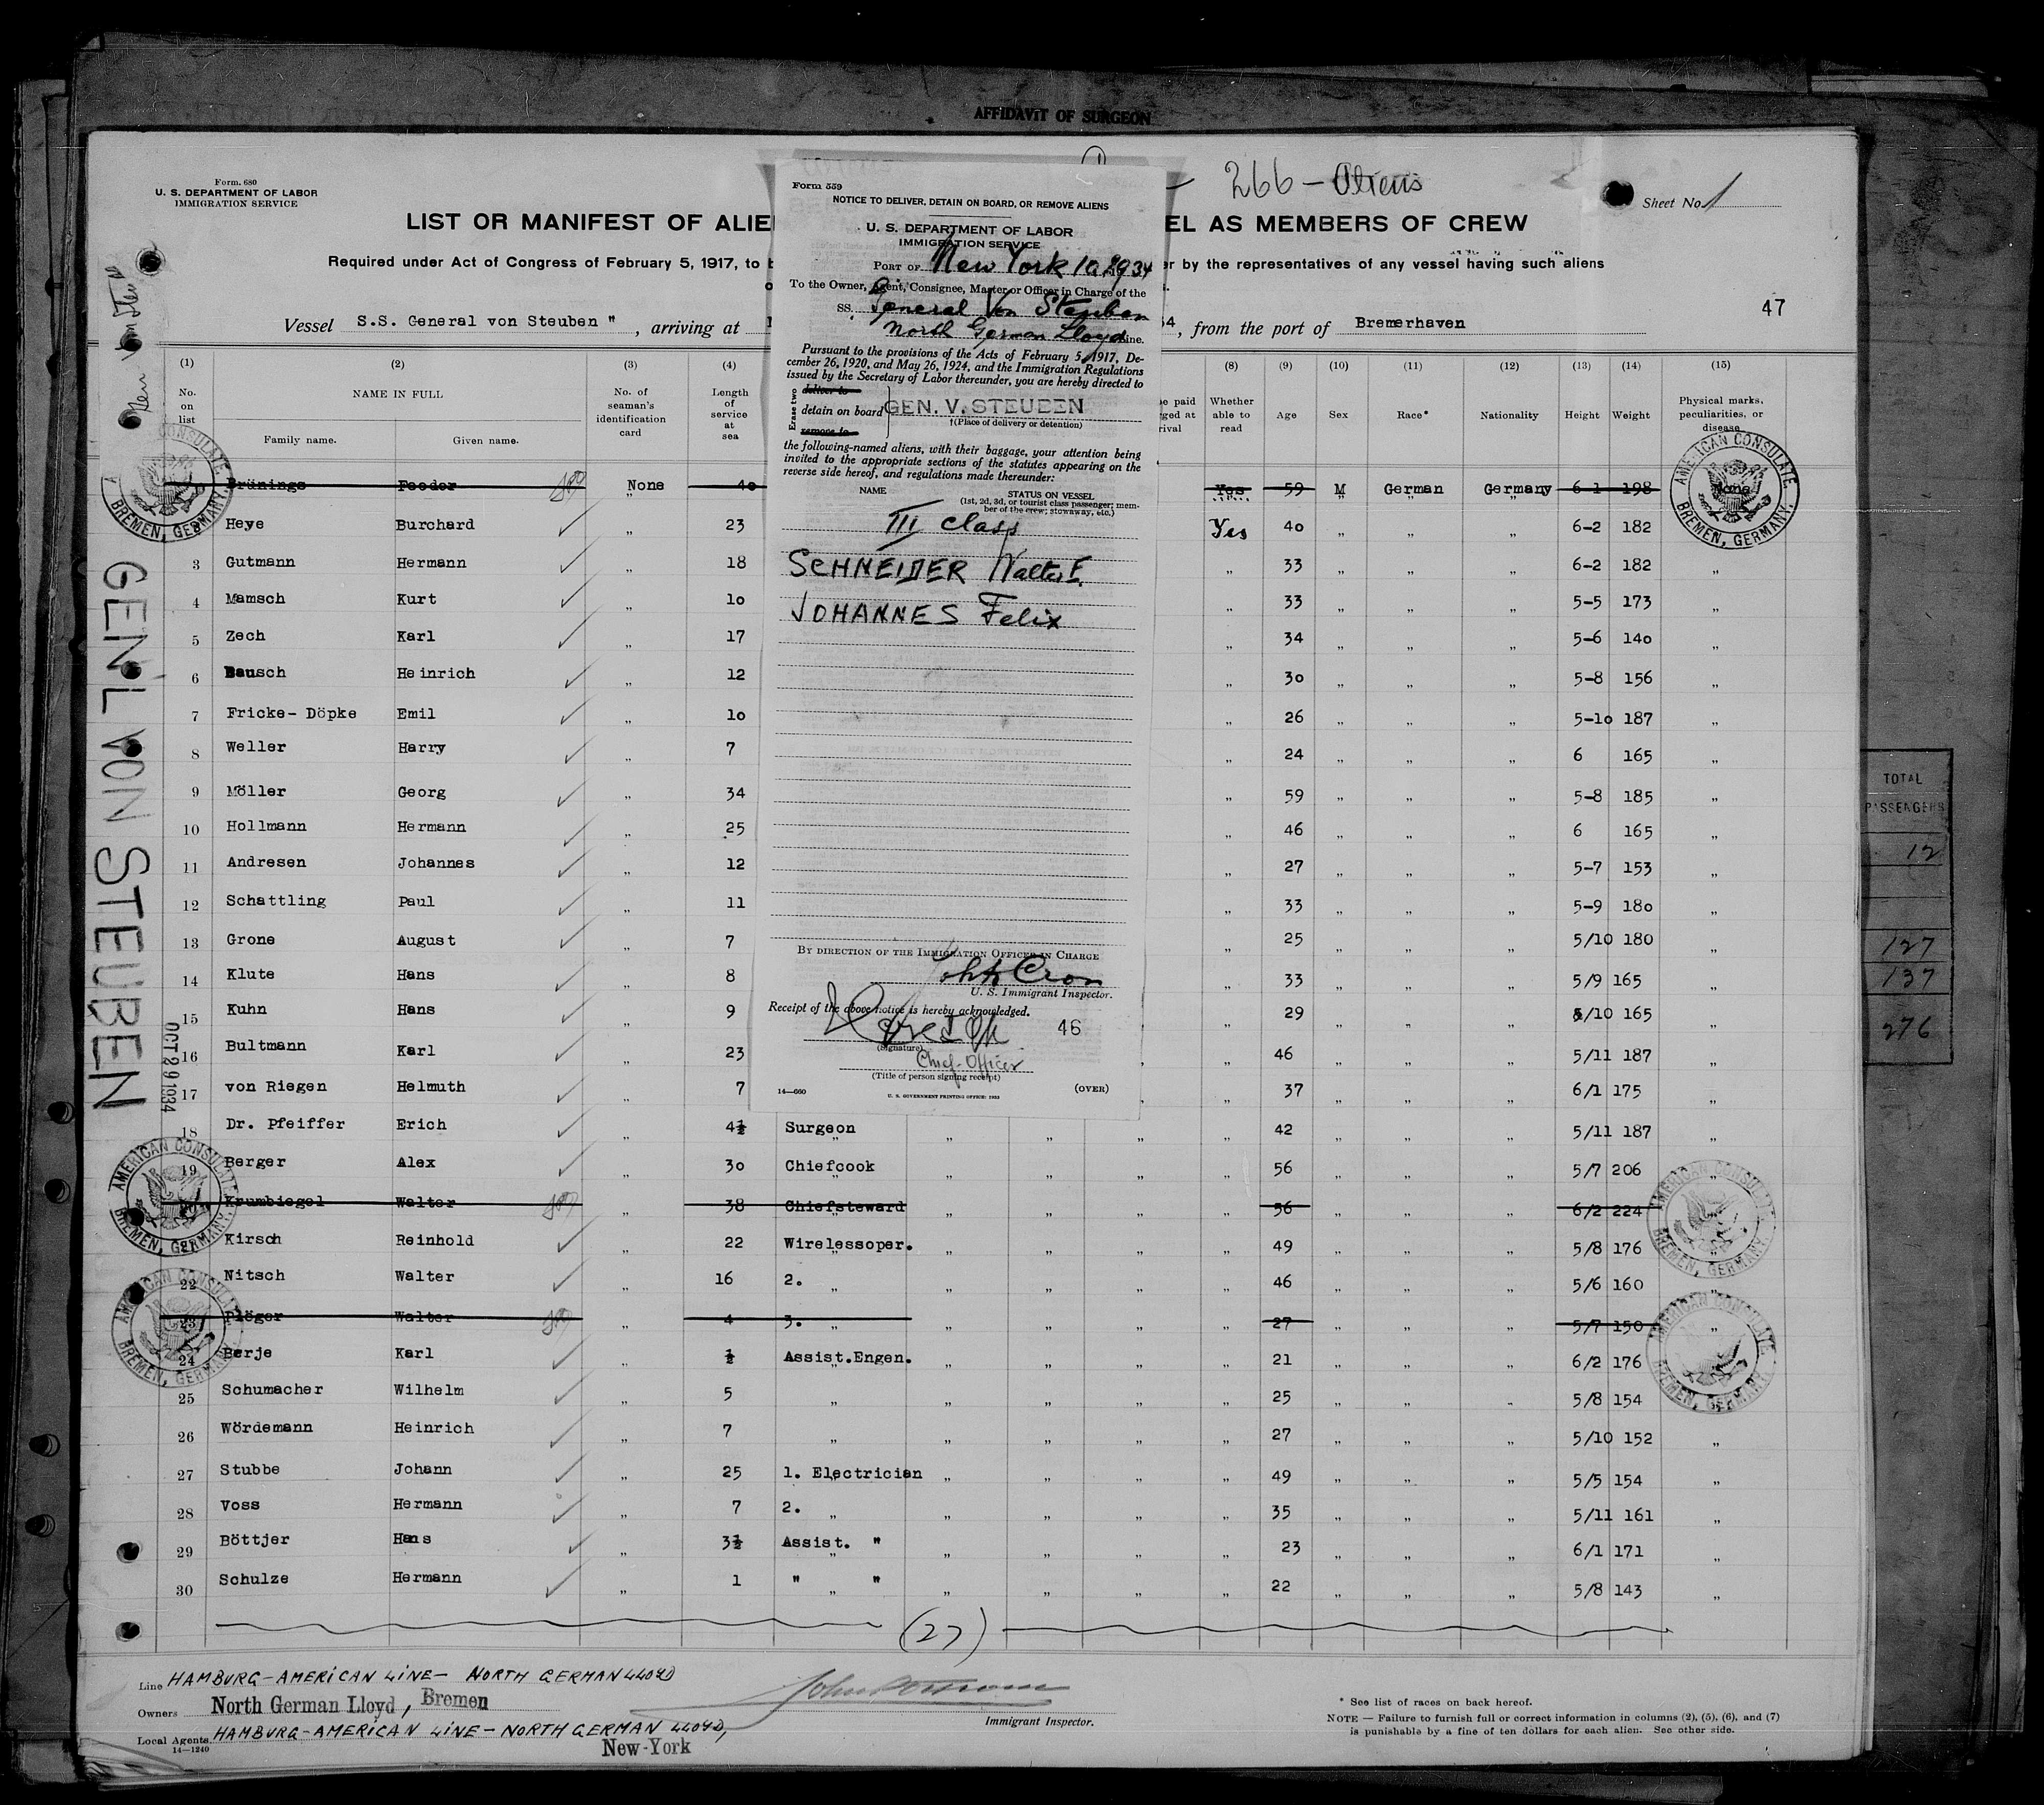 AFFIDAVIT OF SURGEON
Form. 680
U. S. DEPARTMENT OF LABOR
IMMIGRATION SERVICE
266 - Aliens
Sheet No. 1
LIST OR MANIFEST OF ALIE
EL AS MEMBERS OF CREW
Required under Act of Congress of February 5, 1917, to b
er by the representatives of any vessel having such aliens
47
Vessel S.S. General von Steuben " , arriving at
34 , from the port of Bremerhaven
Form 559
NOTICE TO DELIVER, DETAIN ON BOARD, OR REMOVE ALIENS
U. S. DEPARTMENT OF LABOR
IMMIGRATION SERVICE
PORT OF New York 10 29 34
To the Owner, Agent, Consignee, Master or Officer in Charge of the
SS. General Von Steuben
North German Lloyd Line.
Pursuant to the provisions of the Acts of February 5, 1917, De-
cember 26, 1920, and May 26, 1924, and the Immigration Regulations
issued by the Secretary of Labor thereunder, you are hereby directed to
Erase two
deliver to
detain on board GEN. V. STEUBEN
remove to
†(Place of delivery or detention)
the following-named aliens, with their baggage, your attention being
invited to the appropriate sections of the statutes appearing on the
reverse side hereof, and regulations made thereunder:
NAME STATUS ON VESSEL
(1st, 2d, 3d, or tourist class passenger; mem-
ber of the crew; stowaway, etc.)
III Class
SCHNEIDER Walter E.
JOHANNES Felix
BY DIRECTION OF THE IMMIGRATION OFFICER IN CHARGE
U. S. Immigrant Inspector.
Receipt of the above notice is hereby acknowledged.
46
(Signature)
Chief-Officer
(Title of person signing receipt)
14—660 U. S. GOVERNMENT PRINTING OFFICE: 1933 (OVER)
(1) (2) (3) (4) (8) (9) (10) (11) (12) (13) (14) (15)
No. on list NAME IN FULL No. of seaman's identification card Length of service at sea Whether able to read Age Sex Race* Nationality Height Weight Physical marks, peculiarities, or disease
Family name. Given name.
Brünings Feeder None 40 Yes 59 M German Germany 6-1 198 None
Heye Burchard „ 23 Yes 40 „ „ „ 6-2 182
3 Gutmann Hermann „ 18 „ 33 „ „ „ 6-2 182 „
4 Mamsch Kurt „ 10 „ 33 „ „ „ 5-5 173 „
5 Zech Karl „ 17 „ 34 „ „ „ 5-6 140 „
6 Bausch Heinrich „ 12 „ 30 „ „ „ 5-8 156 „
7 Fricke- Döpke Emil „ 10 „ 26 „ „ „ 5-10 187 „
8 Weller Harry „ 7 „ 24 „ „ „ 6 165 „
9 Möller Georg „ 34 „ 59 „ „ „ 5-8 185 „
10 Hollmann Hermann „ 25 „ 46 „ „ „ 6 165 „
11 Andresen Johannes „ 12 „ 27 „ „ „ 5-7 153 „
12 Schattling Paul „ 11 „ 33 „ „ „ 5-9 180 „
13 Grone August „ 7 „ 25 „ „ „ 5/10 180 „
14 Klute Hans „ 8 „ 33 „ „ „ 5/9 165 „
15 Kuhn Hans „ 9 „ 29 „ „ „ 5/10 165 „
16 Bultmann Karl „ 23 „ 46 „ „ „ 5/11 187 „
17 von Riegen Helmuth „ 7 „ 37 „ „ „ 6/1 175 „
18 Dr. Pfeiffer Erich „ 4½ Surgeon „ „ „ „ 42 „ „ „ 5/11 187 „
19 Berger Alex „ 30 Chiefcook „ „ „ „ 56 „ „ „ 5/7 206 „
20 Krumbiegel Walter „ 38 Chiefsteward „ „ „ „ 56 „ „ „ 6/2 224
21 Kirsch Reinhold „ 22 Wirelessoper. „ „ „ „ 49 „ „ „ 5/8 176 „
22 Nitsch Walter „ 16 2. „ „ „ „ „ 46 „ „ „ 5/6 160 „
23 Plöger Walter „ 4 3. „ „ „ „ „ 27 „ „ „ 5/7 150 „
24 Berje Karl „ ½ Assist.Engen. „ „ „ „ 21 „ „ „ 6/2 176 „
25 Schumacher Wilhelm „ 5 „ „ „ „ „ 25 „ „ „ 5/8 154 „
26 Wördemann Heinrich „ 7 „ „ „ „ „ 27 „ „ „ 5/10 152 „
27 Stubbe Johann „ 25 1. Electrician „ „ „ „ 49 „ „ „ 5/5 154 „
28 Voss Hermann „ 7 2. „ „ „ „ „ 35 „ „ „ 5/11 161 „
29 Böttjer Hans „ 3½ Assist. " „ „ „ „ 23 „ „ „ 6/1 171 „
30 Schulze Hermann „ 1 " " „ „ „ „ 22 „ „ „ 5/8 143 „
(27)
GEN'L VON STEUBEN
OCT 29 1934
AMERICAN CONSULATE
BREMEN, GERMANY.
AMERICAN CONSULATE
BREMEN, GERMANY.
AMERICAN CONSULATE
BREMEN, GERMANY.
AMERICAN CONSULATE
BREMEN, GERMANY.
AMERICAN CONSULATE
BREMEN, GERMANY.
AMERICAN CONSULATE
BREMEN, GERMANY.
TOTAL
PASSENGERS
12
127
137
276
Line HAMBURG-AMERICAN LINE- NORTH GERMAN LLOYD
Owners North German Lloyd, Bremen
Local Agents HAMBURG-AMERICAN LINE-NORTH GERMAN LLOYD,
New-York
14—1240
Immigrant Inspector.
* See list of races on back hereof.
NOTE — Failure to furnish full or correct information in columns (2), (5), (6), and (7)
is punishable by a fine of ten dollars for each alien. See other side.